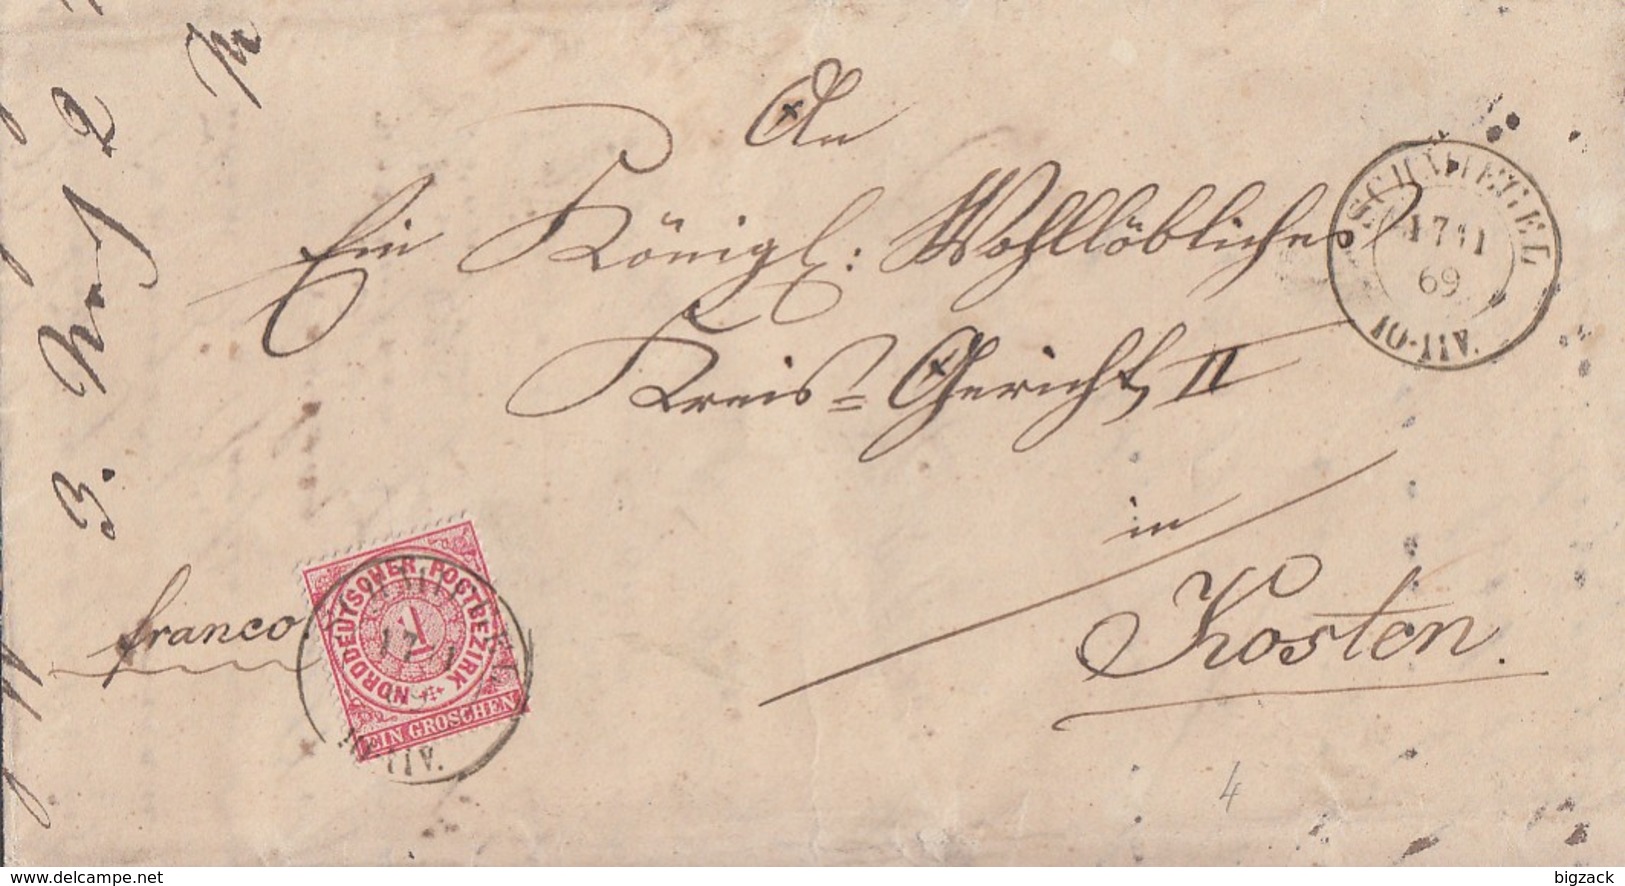 An
Ein Königl: Wohllöbliches
Kreis= Gericht II
in
Kosten.
franco
SCHMIEGEL
17 11
69
10-11V.
NORDDEUTSCHER POSTBEZIRK
1
EIN GROSCHEN
17
11V.
3.
2
4
www.delcampe.net
bigzack